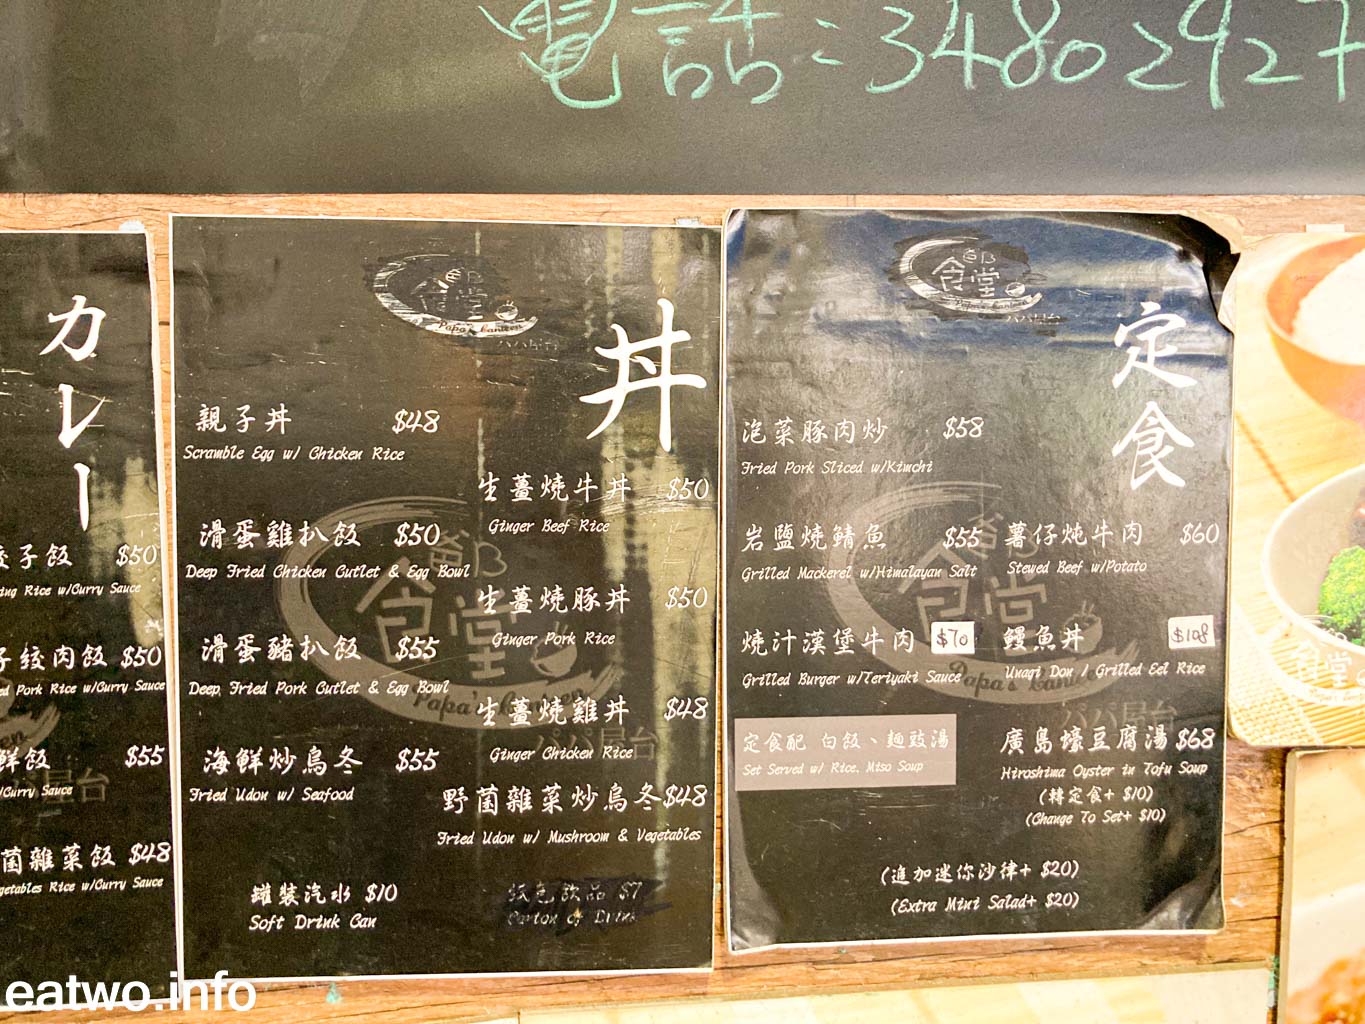 電話：34802927
カレー
餃子飯 $50
Rice w/Curry Sauce
子絞肉飯 $50
Pork Rice w/Curry Sauce
鮮飯 $55
w/Curry Sauce
菌雜菜飯 $48
Vegetables Rice w/Curry Sauce
食堂
Papa's Canteen
パパ屋台
丼
親子丼 $48
Scramble Egg w/ Chicken Rice
生薑燒牛丼 $50
Ginger Beef Rice
滑蛋雞扒飯 $50
Deep Fried Chicken Cutlet & Egg Bowl
生薑燒豚丼 $50
Ginger Pork Rice
滑蛋豬扒飯 $55
Deep Fried Pork Cutlet & Egg Bowl
生薑燒雞丼 $48
Ginger Chicken Rice
海鮮炒烏冬 $55
Fried Udon w/ Seafood
野菌雜菜炒烏冬 $48
Fried Udon w/ Mushroom & Vegetables
罐裝汽水 $10
Soft Drink Can
飲品 $7
Carton of Drink
食堂
Papa's Canteen
パパ屋台
食堂
Papa's Canteen
パパ屋台
定食
泡菜豚肉炒 $58
Fried Pork Sliced w/Kimchi
岩鹽燒鯖魚 $55
Grilled Mackerel w/Himalayan Salt
薯仔炖牛肉 $60
Stewed Beef w/Potato
燒汁漢堡牛肉 $70
Grilled Burger w/Teriyaki Sauce
鰻魚丼 $108
Unagi Don / Grilled Eel Rice
定食配 白飯、麵豉湯
Set Served w/ Rice, Miso Soup
廣島蠔豆腐湯 $68
Hiroshima Oyster in Tofu Soup
(轉定食+ $10)
(Change To Set+ $10)
(進加迷你沙律+ $20)
(Extra Mini Salad+ $20)
食堂
Papa's Canteen
パパ屋台
食堂
eatwo.info